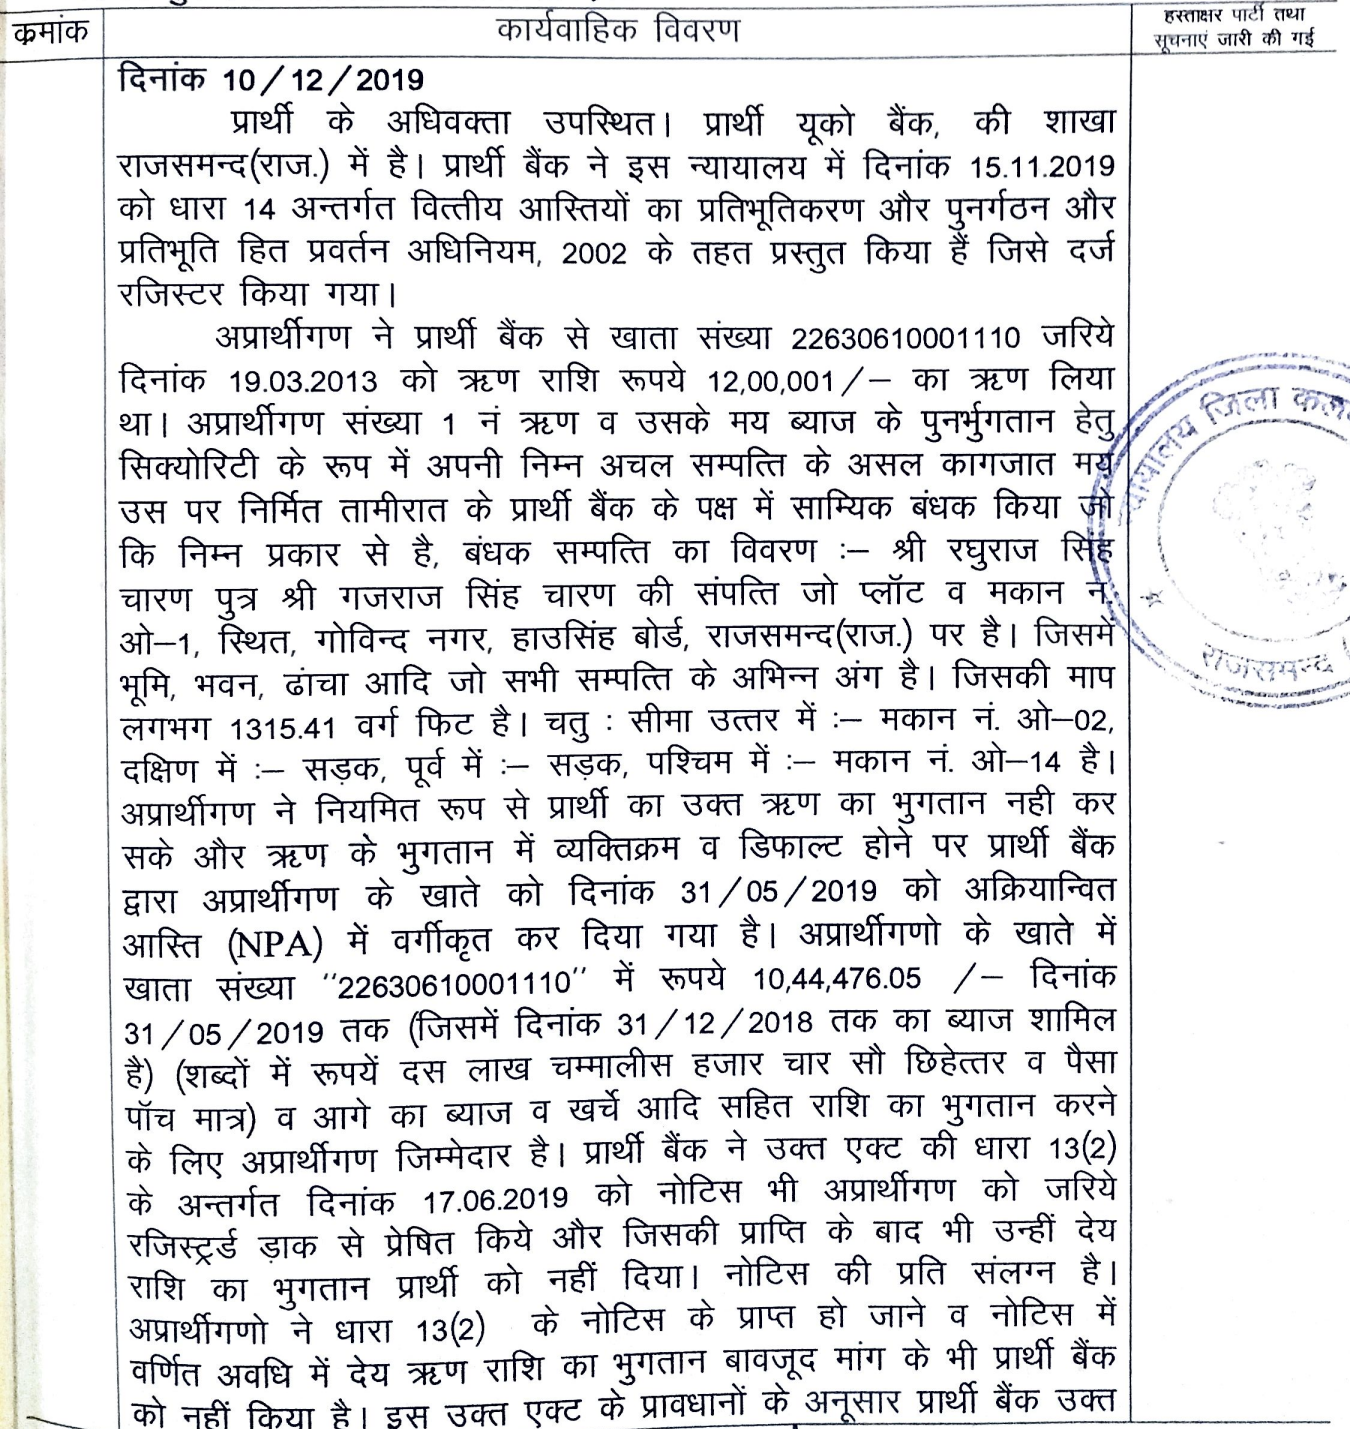 क्रमांक
कार्यवाहिक विवरण
हस्ताक्षर पार्टी तथा
सूचनाएं जारी की गई
दिनांक 10/12/2019
प्रार्थी के अधिवक्ता उपस्थित। प्रार्थी यूको बैंक, की शाखा
राजसमन्द(राज.) में है। प्रार्थी बैंक ने इस न्यायालय में दिनांक 15.11.2019
को धारा 14 अन्तर्गत वित्तीय आस्तियों का प्रतिभूतिकरण और पुनर्गठन और
प्रतिभूति हित प्रवर्तन अधिनियम, 2002 के तहत प्रस्तुत किया हैं जिसे दर्ज
रजिस्टर किया गया।
अप्रार्थीगण ने प्रार्थी बैंक से खाता संख्या 22630610001110 जरिये
दिनांक 19.03.2013 को ऋण राशि रूपये 12,00,001/– का ऋण लिया
था। अप्रार्थीगण संख्या 1 नं ऋण व उसके मय ब्याज के पुनर्भुगतान हेतु
सिक्योरिटी के रूप में अपनी निम्न अचल सम्पत्ति के असल कागजात मय
उस पर निर्मित तामीरात के प्रार्थी बैंक के पक्ष में साम्यिक बंधक किया जो
कि निम्न प्रकार से है, बंधक सम्पत्ति का विवरण :– श्री रघुराज सिंह
चारण पुत्र श्री गजराज सिंह चारण की संपत्ति जो प्लॉट व मकान नं
ओ–1, स्थित, गोविन्द नगर, हाउसिंह बोर्ड, राजसमन्द(राज.) पर है। जिसमें
भूमि, भवन, ढांचा आदि जो सभी सम्पत्ति के अभिन्न अंग है। जिसकी माप
लगभग 1315.41 वर्ग फिट है। चतु : सीमा उत्तर में :– मकान नं. ओ–02,
दक्षिण में :– सड़क, पूर्व में :– सड़क, पश्चिम में :– मकान नं. ओ–14 है।
अप्रार्थीगण ने नियमित रूप से प्रार्थी का उक्त ऋण का भुगतान नही कर
सके और ऋण के भुगतान में व्यक्तिक्रम व डिफाल्ट होने पर प्रार्थी बैंक
द्वारा अप्रार्थीगण के खाते को दिनांक 31/05/2019 को अक्रियान्वित
आस्ति (NPA) में वर्गीकृत कर दिया गया है। अप्रार्थीगणो के खाते में
खाता संख्या ''22630610001110'' में रूपये 10,44,476.05 /– दिनांक
31/05/2019 तक (जिसमें दिनांक 31/12/2018 तक का ब्याज शामिल
है) (शब्दों में रूपयें दस लाख चम्मालीस हजार चार सौ छिहेत्तर व पैसा
पॉच मात्र) व आगे का ब्याज व खर्चे आदि सहित राशि का भुगतान करने
के लिए अप्रार्थीगण जिम्मेदार है। प्रार्थी बैंक ने उक्त एक्ट की धारा 13(2)
के अन्तर्गत दिनांक 17.06.2019 को नोटिस भी अप्रार्थीगण को जरिये
रजिस्ट्रर्ड ड़ाक से प्रेषित किये और जिसकी प्राप्ति के बाद भी उन्हीं देय
राशि का भुगतान प्रार्थी को नहीं दिया। नोटिस की प्रति संलग्न है।
अप्रार्थीगणो ने धारा 13(2) के नोटिस के प्राप्त हो जाने व नोटिस में
वर्णित अवधि में देय ऋण राशि का भुगतान बावजूद मांग के भी प्रार्थी बैंक
को नहीं किया है। इस उक्त एक्ट के प्रावधानों के अनूसार प्रार्थी बैंक उक्त
न्यायालय जिला कल
राजसमन्द